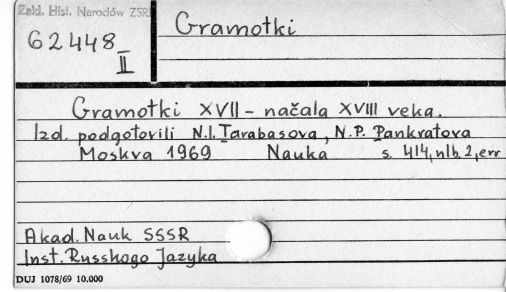 Zakł. Hist. Narodów ZSRR
62448
II
Gramotki
Gramotki XVII – načala XVIII veka.
Izd. podgotovili N.I. Tarabasova, N.P. Pankratova
Moskva 1969 Nauka s. 414, nlb. 2, err
Akad. Nauk SSSR
Inst. Russkogo Jazyka
DUJ 1078/69 10.000